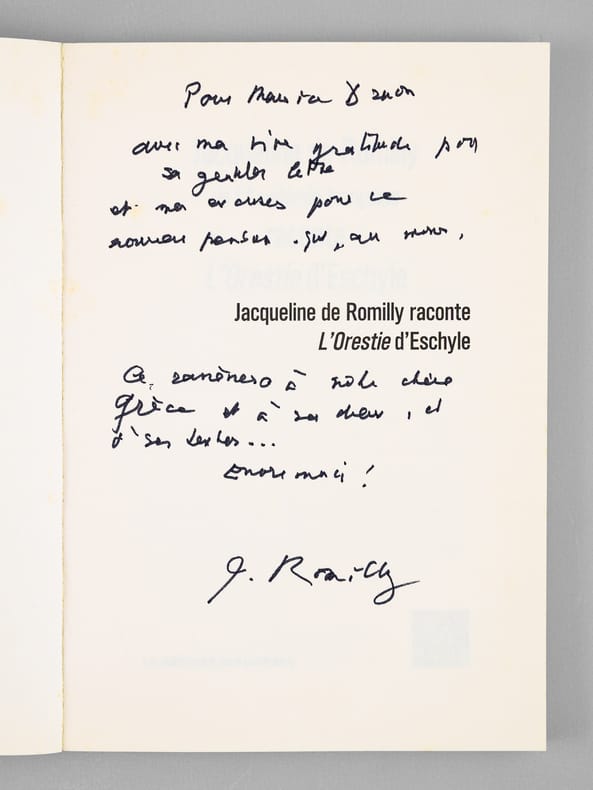 Pour Maurice Druon
avec ma vive gratitude pour
sa gentille lettre
et mes excuses pour ce
nouveau . qui, au moins,
Jacqueline de Romilly raconte
L'Orestie d'Eschyle
ramènera à notre chère
Grèce et à ses dieux, et
à ses textes...
Encore merci !
J. Romilly